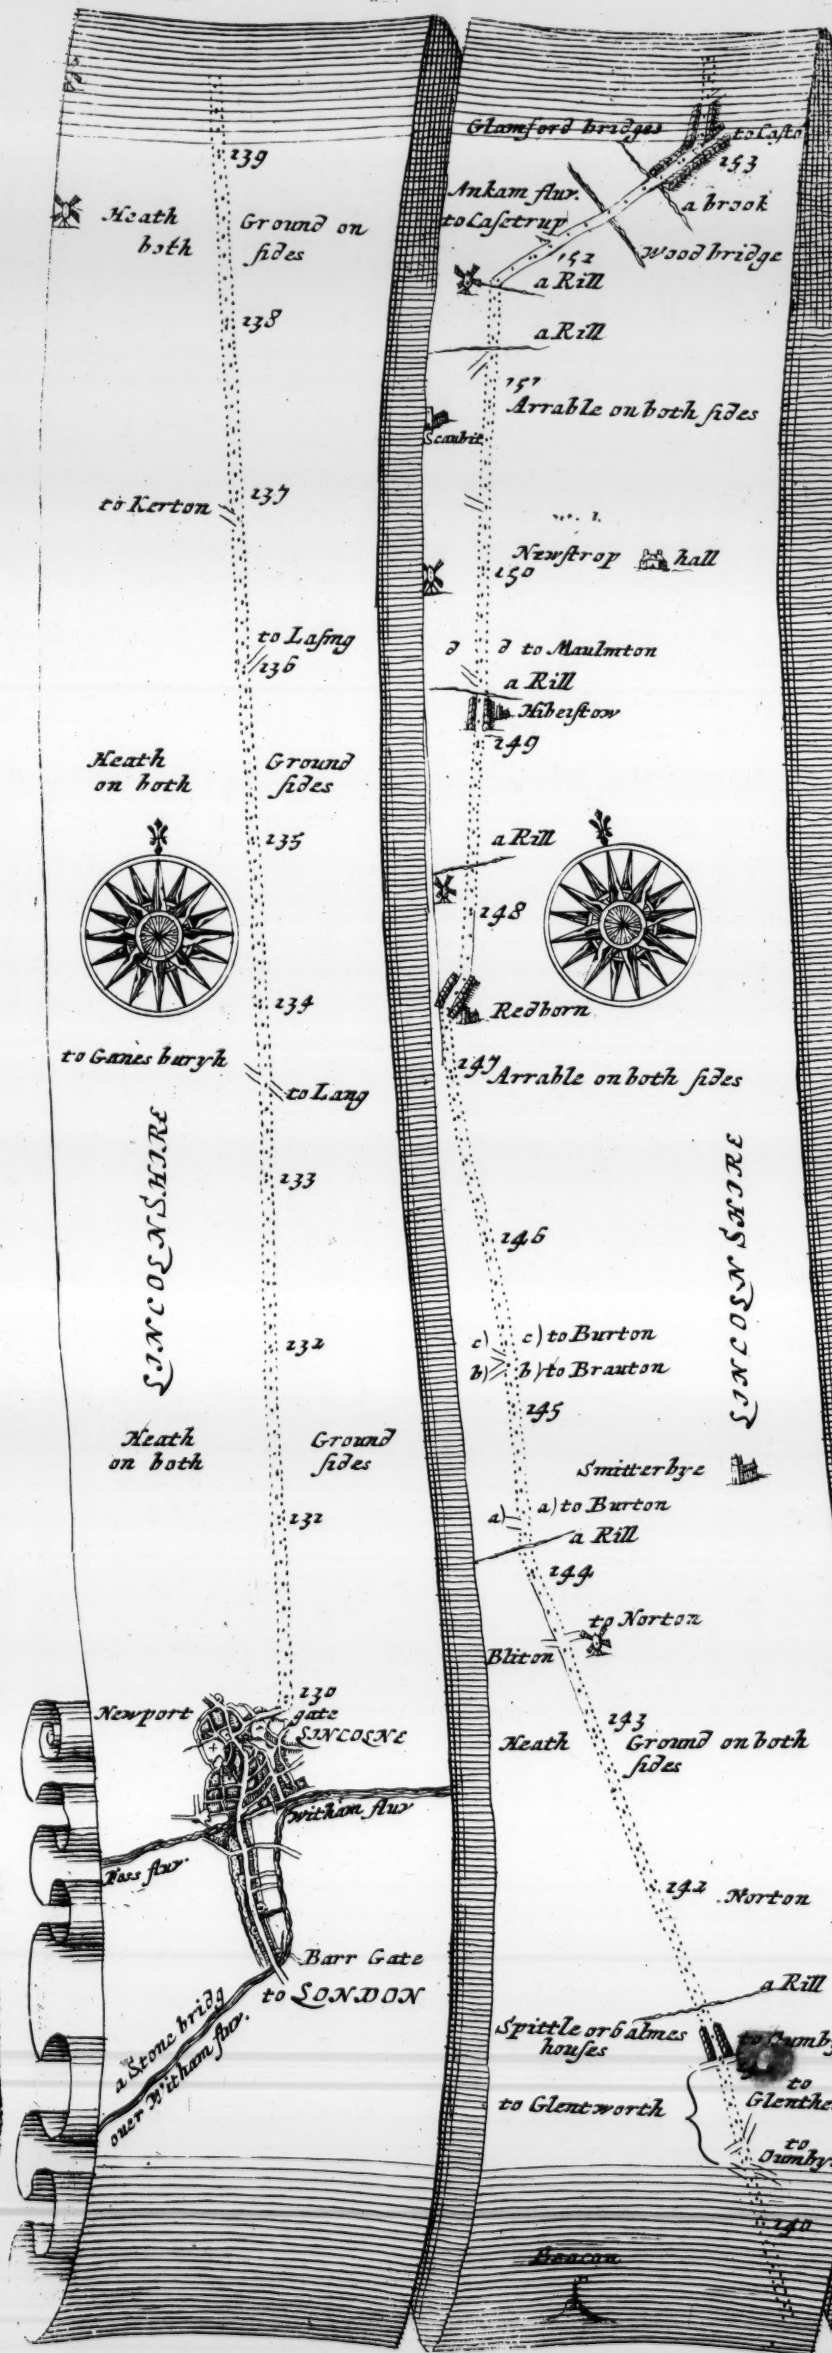 139
Heath
both
Ground on
sides
138
137
to Kerton
to Lasing
136
Heath
on both
Ground
sides
135
134
to Ganes buryh
to Lang
133
LINCOLNSHIRE
132
Heath
on both
Ground
sides
131
130
Newport
gate
LINCOLNE
Witham flur
Foss flur.
Barr Gate
to LONDON
a Stone bridg
over Witham flur.
Glamford bridges
to Casto
153
Ankam flur.
a brook
to Casetrup
Wood bridge
152
a Rill
a Rill
151
Arrable on both sides
Scaubie
Newstrop hall
150
d d to Maulmton
a Rill
Hiberstow
149
a Rill
148
Redborn
147
Arrable on both sides
146
LINCOLNSHIRE
c) c) to Burton
b) b) to Brauton
145
Smitterbye
a) a) to Burton
a Rill
144
to Norton
Bliton
143
Heath
Ground on both
sides
142
Norton
a Rill
Spittle or 6 almes
houses
to Glentworth
to
Glenthe
to
Oumby
140
Beacon